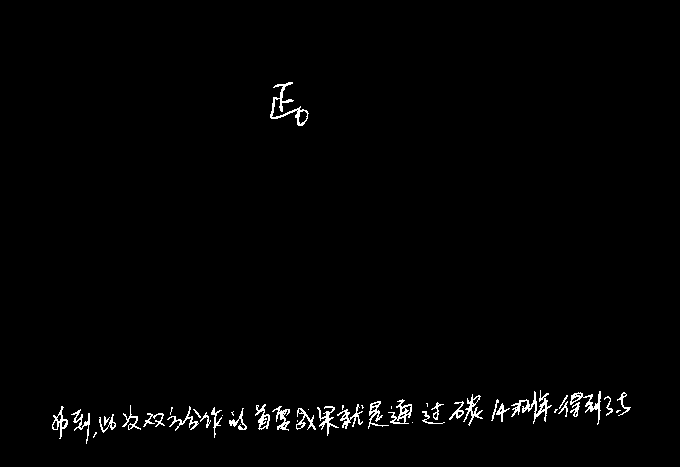 正。
到,此次双方合作的首要成果就是通过碳14测年,得到了